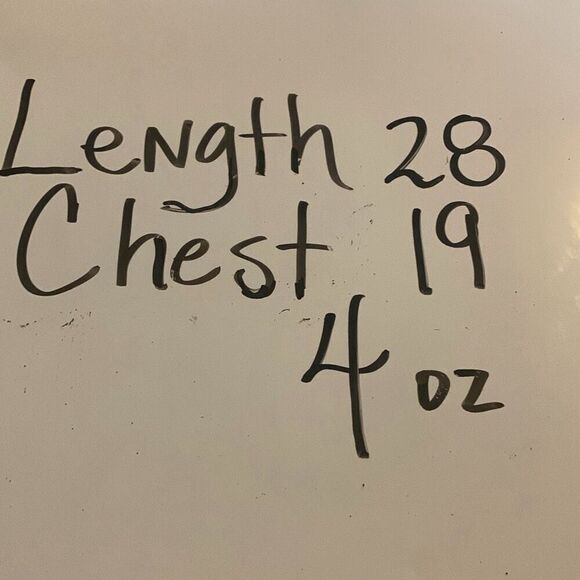 Length 28
Chest 19
4 oz